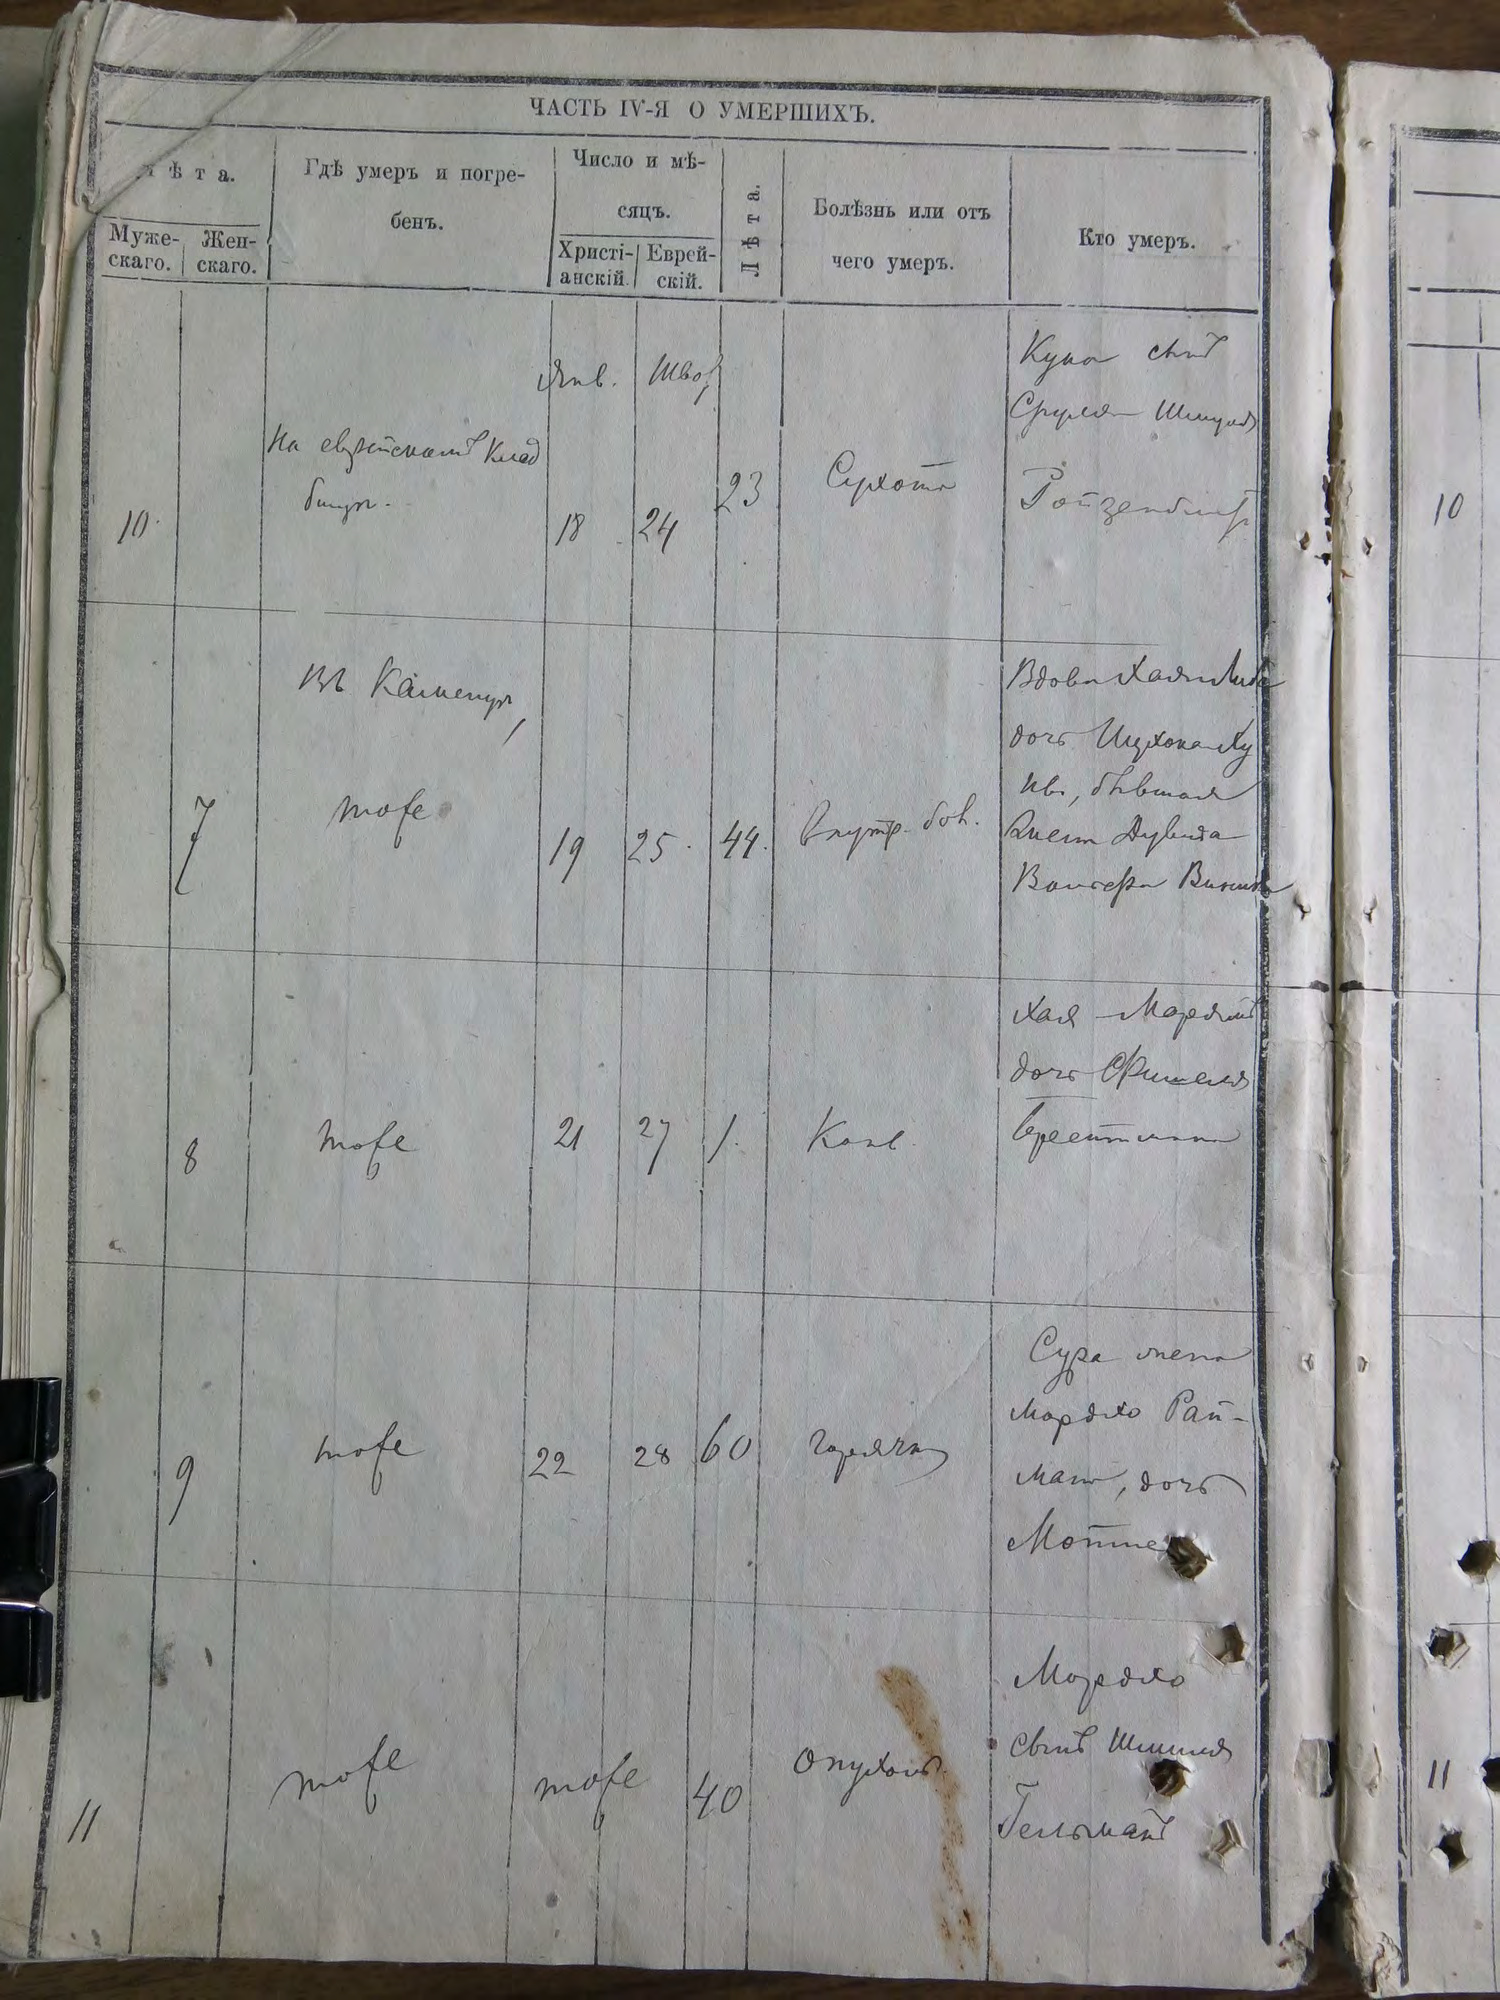 ЧАСТЬ IV-Я О УМЕРШИХЪ.
ѣта.
Муже-
скаго.
Жен-
скаго.
Гдѣ умеръ и погре-
бенъ.
Число и мѣ-
сяцъ.
Христі-
анскій.
Еврей-
скій.
Лѣта.
Болѣзнь или отъ
чего умеръ.
Кто умеръ.
10
На еврейскомъ клад
бищѣ.
Янв.
18
Шват
24
23
Сухота
Куна сынъ
Сруля Шмуля
Ройзенблитъ
7
Въ Каменцѣ,
тоже
19
25
44.
Внутр. бол.
Вдова Хая
дочь
бывшая
жена Дувида
8
тоже
21
27
1.
Хая
дочь Фишеля
9
тоже
22
28
60
горячка
Сура жена
Мордко Рай-
ман, дочь
11
тоже
тоже
40
опухоль
Мордко
сынъ
Гельманъ
10
11